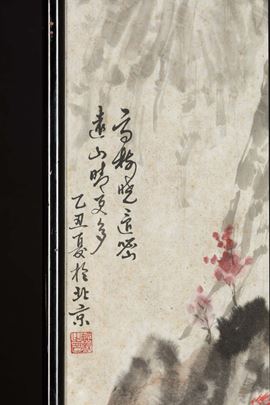 高树晓还密
远山晴更多
乙丑夏於北京